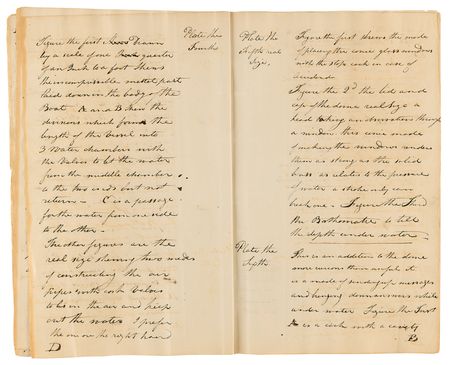 Plate the
Fourth
Figure the first Drawn
by a scale of one quarter
of an Inch to a foot Shews
the incompressible part
laid down in the body of the
Boat A and B Shew the
divisions which form the
length of the Vessel into
3 Water chambers with
the Valves to let the water
from the middle chamber
to the two ends but not
return - C is a passage
for the water from one side
to the other -
The other figures are the
real size shewing two modes
of constructing the air
pipes with cork Valves
to let in the air and keep
out the water I prefer
the one on the right hand
D
Plate the
fifth real
size
Figure the first shews the mode
of placing the conic glass windows
with the stop cock in case of
accidents
Figure the 2d the lid and
cap of the dome real size a
head taking an observation through
a window this conic mode
of making the windows renders
them as strong as the solid
brass as relates to the pressure
of water a stroke only can
break one - Figure the Third
the Bathometer to tell
the depth under water -
Plate the
Sixth
This is an addition to the dome
more curious than useful it
is a mode of sending up messages
and hearing down answers while
under water Figure the First
is a cork with a cavity